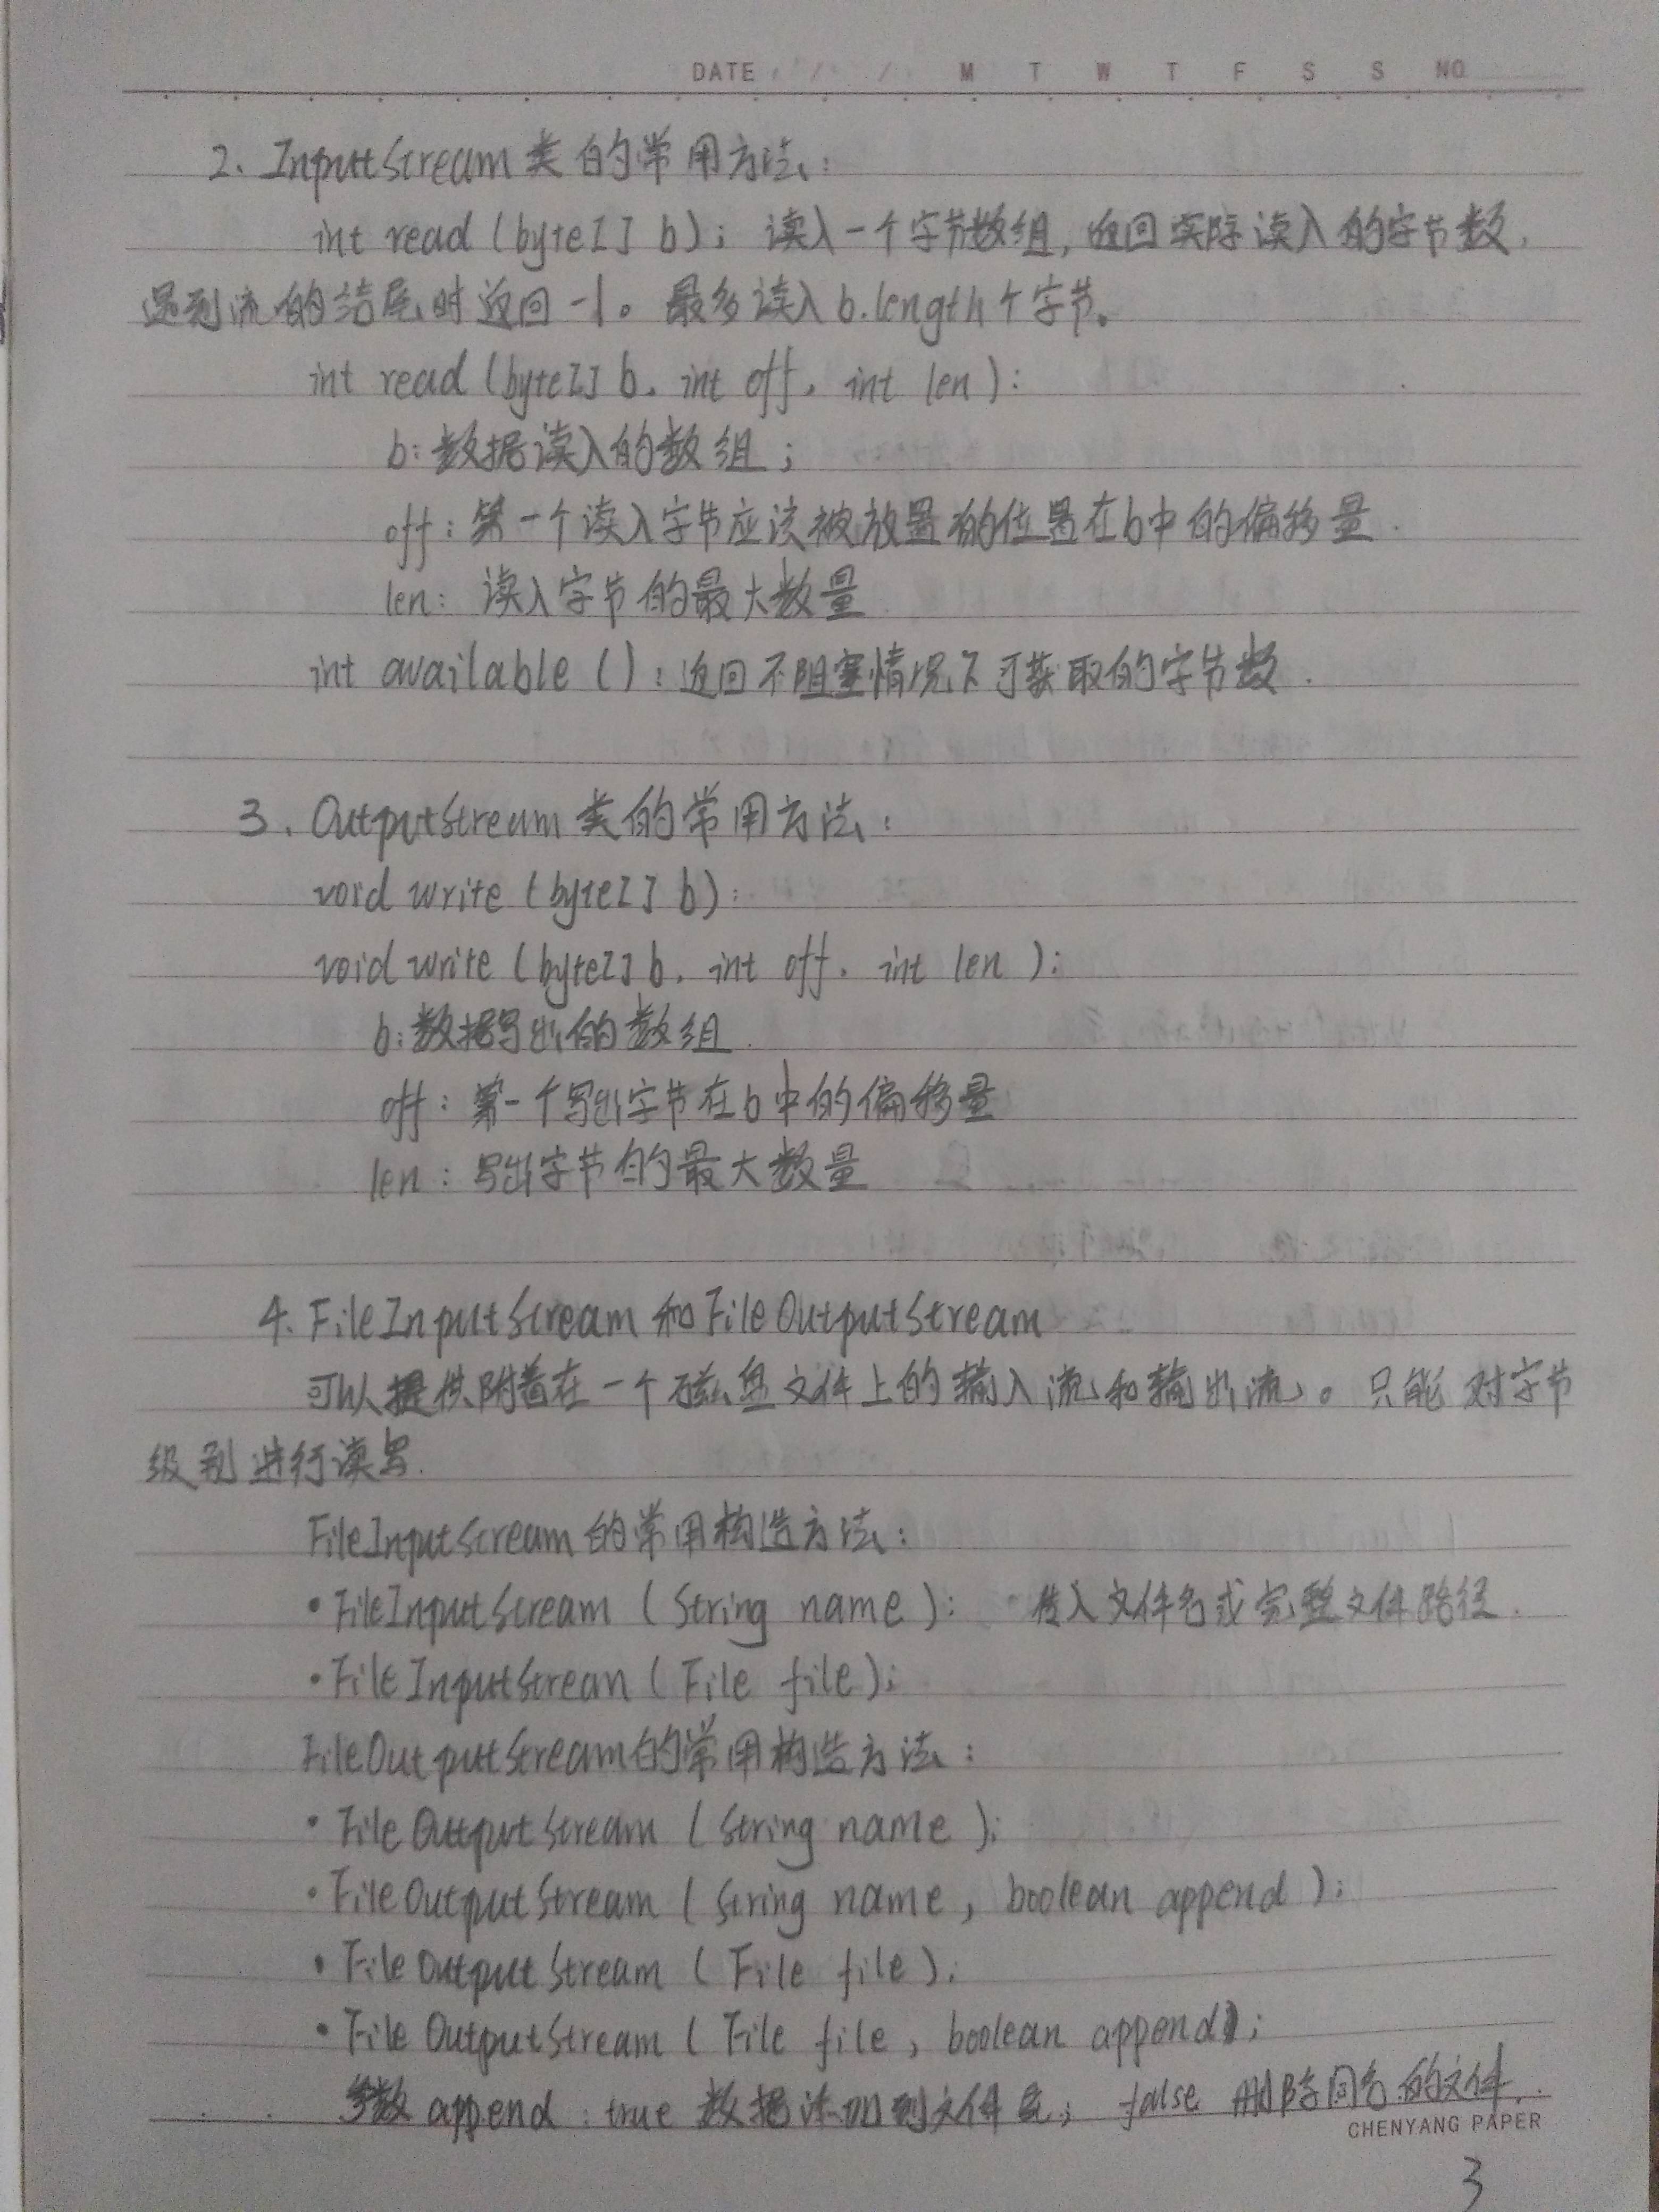 DATE / / M T W T F S S NO
2. InputStream类的常用方法:
int read (byte[] b); 读入一个字节数组, 返回实际读入的字节数,
遇到流的结尾时返回-1。最多读入b.length个字节。
int read (byte[] b, int off, int len):
b: 数据读入的数组;
off: 第一个读入字节应该被放置的位置在b中的偏移量.
len: 读入字节的最大数量
int available (): 返回不阻塞情况下可获取的字节数.
3. OutputStream类的常用方法:
void write (byte[] b):
void write (byte[] b, int off, int len);
b: 数据写出的数组.
off: 第一个写出字节在b中的偏移量
len: 写出字节的最大数量
4. FileInputStream和FileOutputStream
可以提供附着在一个磁盘文件上的输入流和输出流。只能对字节
级别进行读写.
FileInputStream的常用构造方法:
• FileInputStream (String name): 传入文件名或完整文件路径.
• FileInputStrean (File file);
FileOutputStream的常用构造方法:
• FileOutputStream (String name);
• FileOutputStream (String name, boolean append);
• FileOutputStream (File file);
• FileOutputStream (File file, boolean append);
参数append: true 数据添加到文件尾; false 删除同名的文件.
CHENYANG PAPER
3